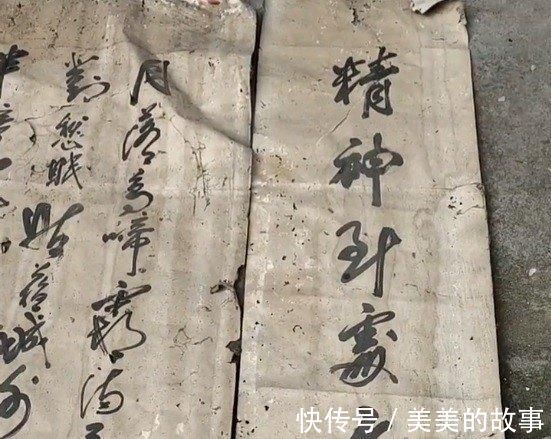 精神到處
月落烏啼霜滿
對愁眠姑蘇城外
快传号 / 美美的故事